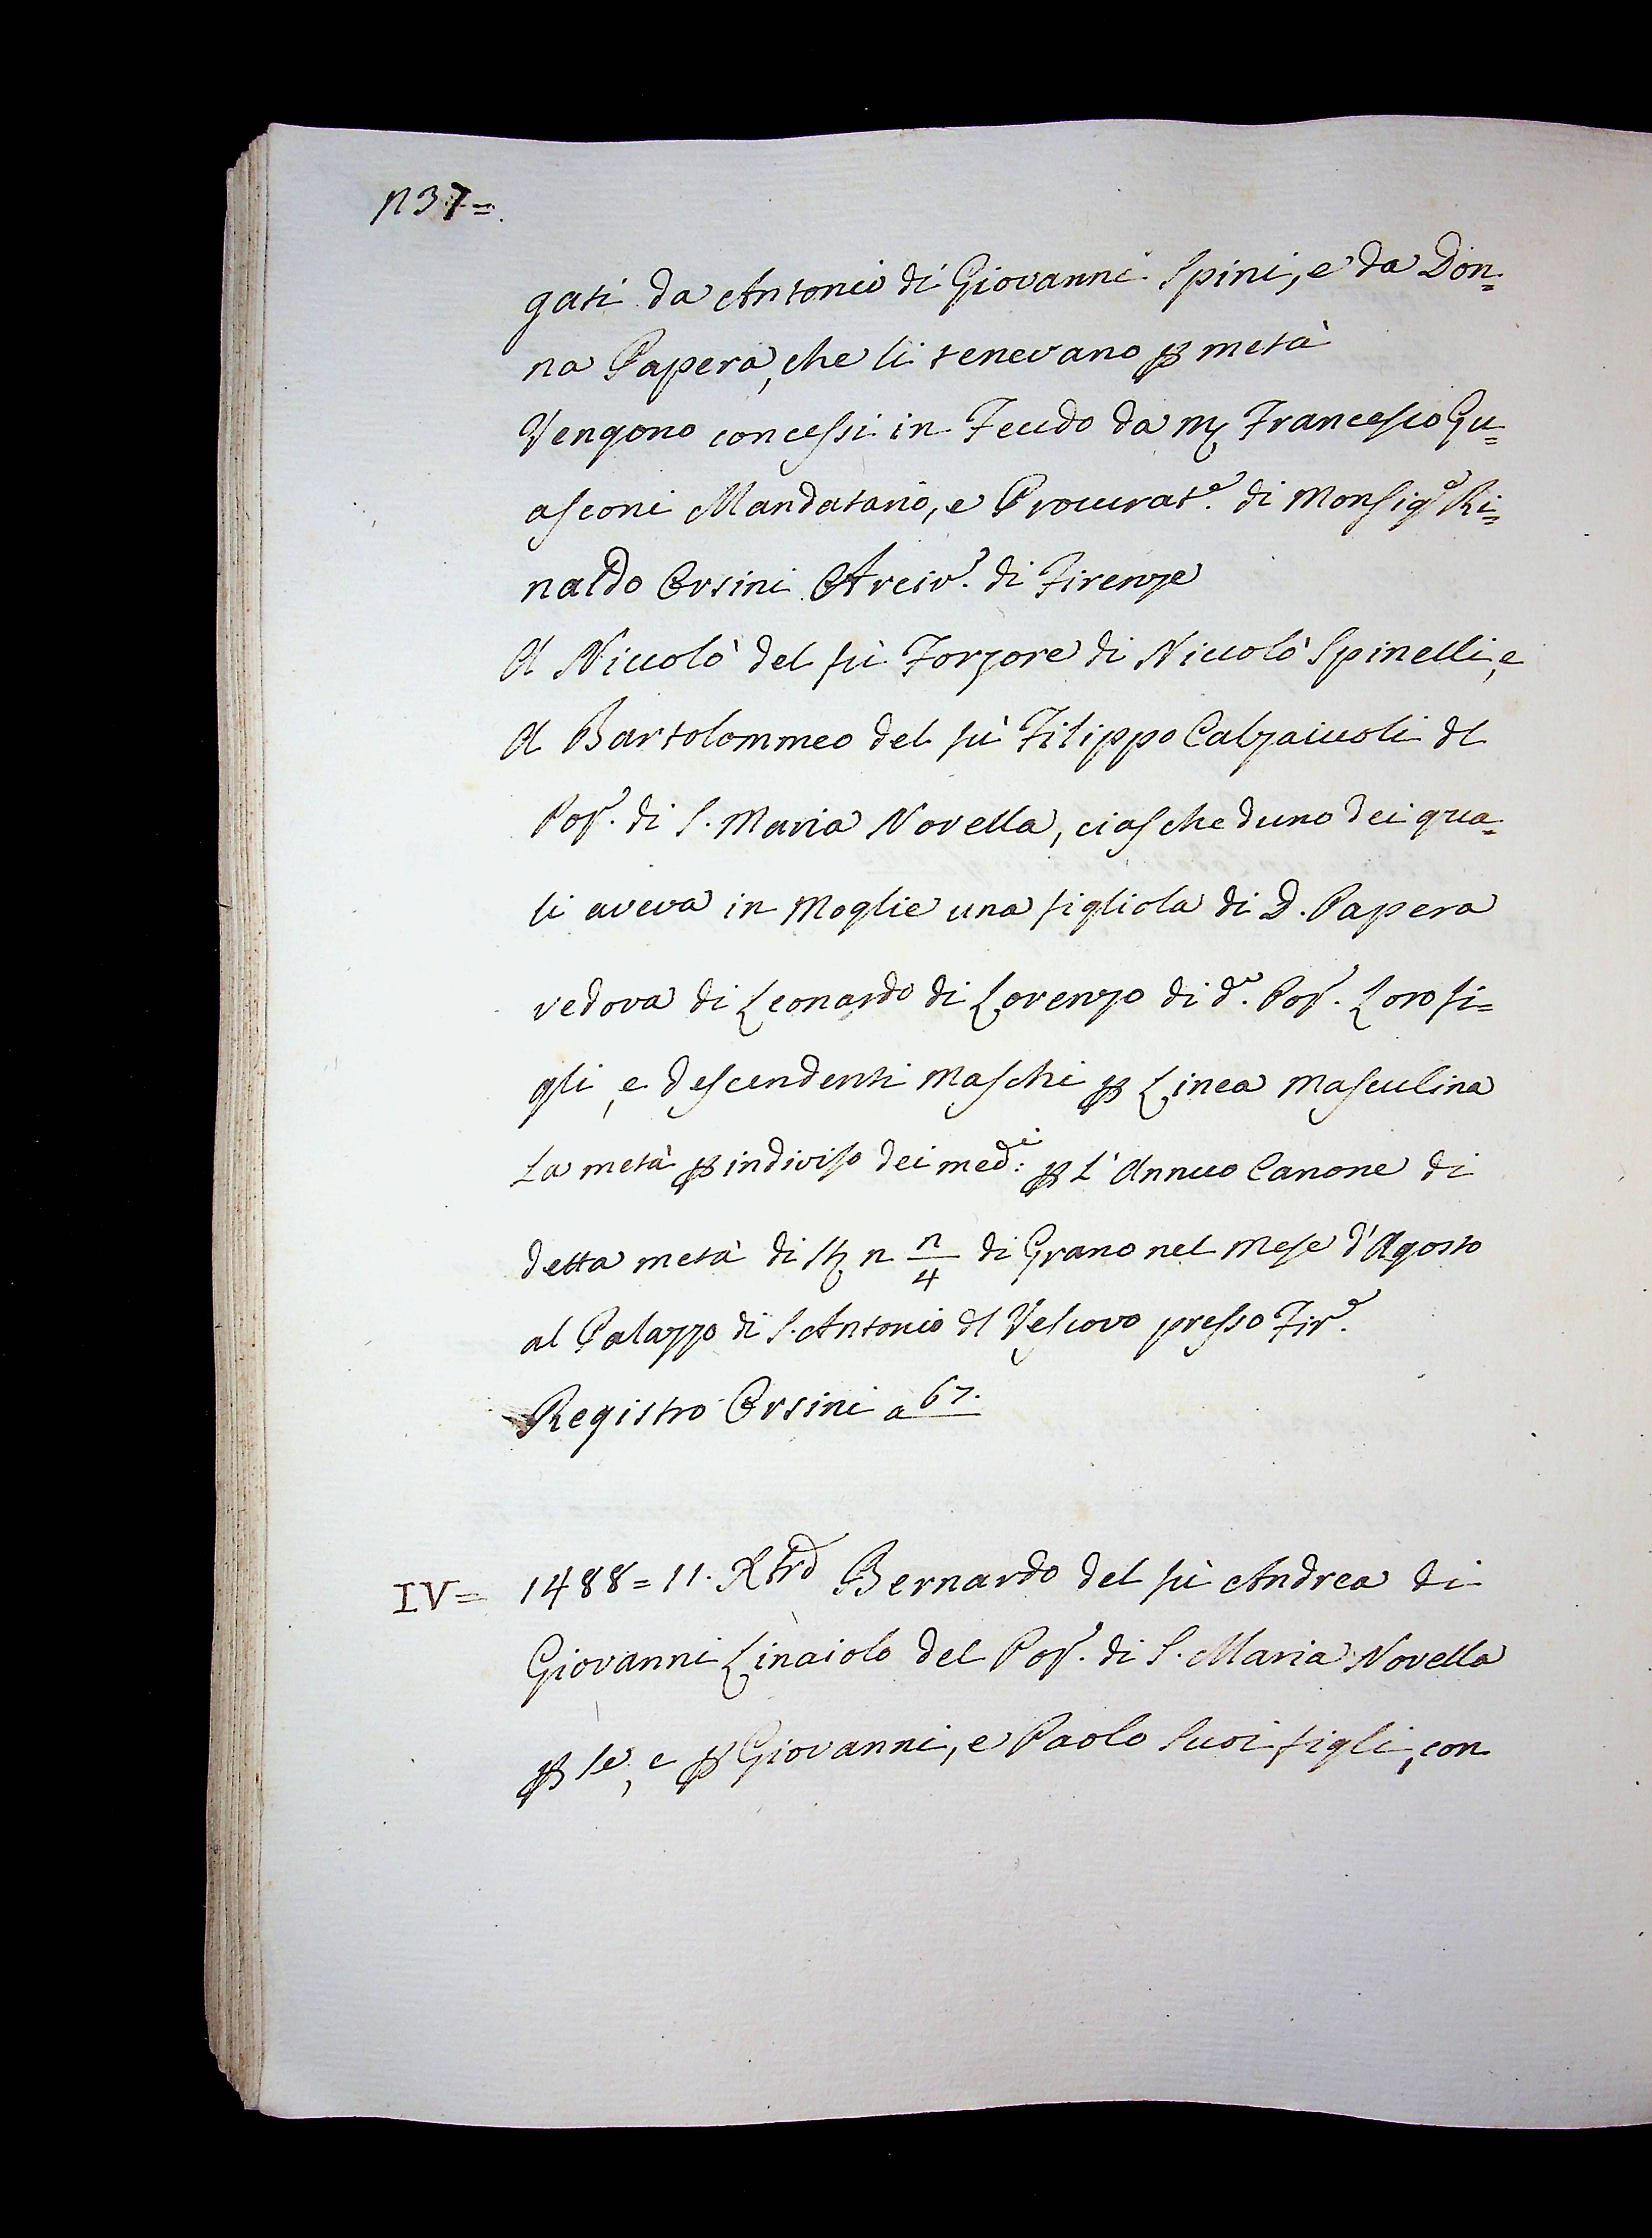 n37=
gati da Antonio di Giovanni Spini, e da Don=
na Papera, che li tenevano ꝑ metà
Vengono concessi in Feudo da Mẹ Francesco Gu=
asconi Mandatario, e Procurat.e di Monsig.e Ri=
naldo Orsini Arciv.o di Firenze
A Niccolò del fù Forzore di Niccolò Spinelli, e
A Bartolommeo del fù Filippo Calzaiuoli dl
Pop.o di S. Maria Novella, ciascheduno dei qua=
li aveva in Moglie una figliola di D. Papera
vedova di Leonardo di Lorenzo di d.o Pop.o Loro fi=
gli, e descendenti Maschi ꝑ Linea Masculina
La metà ꝑ indiviso dei med.i ꝑ L' Annuo Canone di
detta metà di n n/4 di Grano nel Mese d'Agosto
al Palazzo di S. Antonio dl Vescovo presso Fir.e
Registro Orsini a 67.
IV= 1488 = 11. Bernardo del fù Andrea di
Giovanni Linaiolo del Pop.o di S. Maria Novella
ꝑ se, e ꝑ Giovanni, e Paolo Suoi figli, con